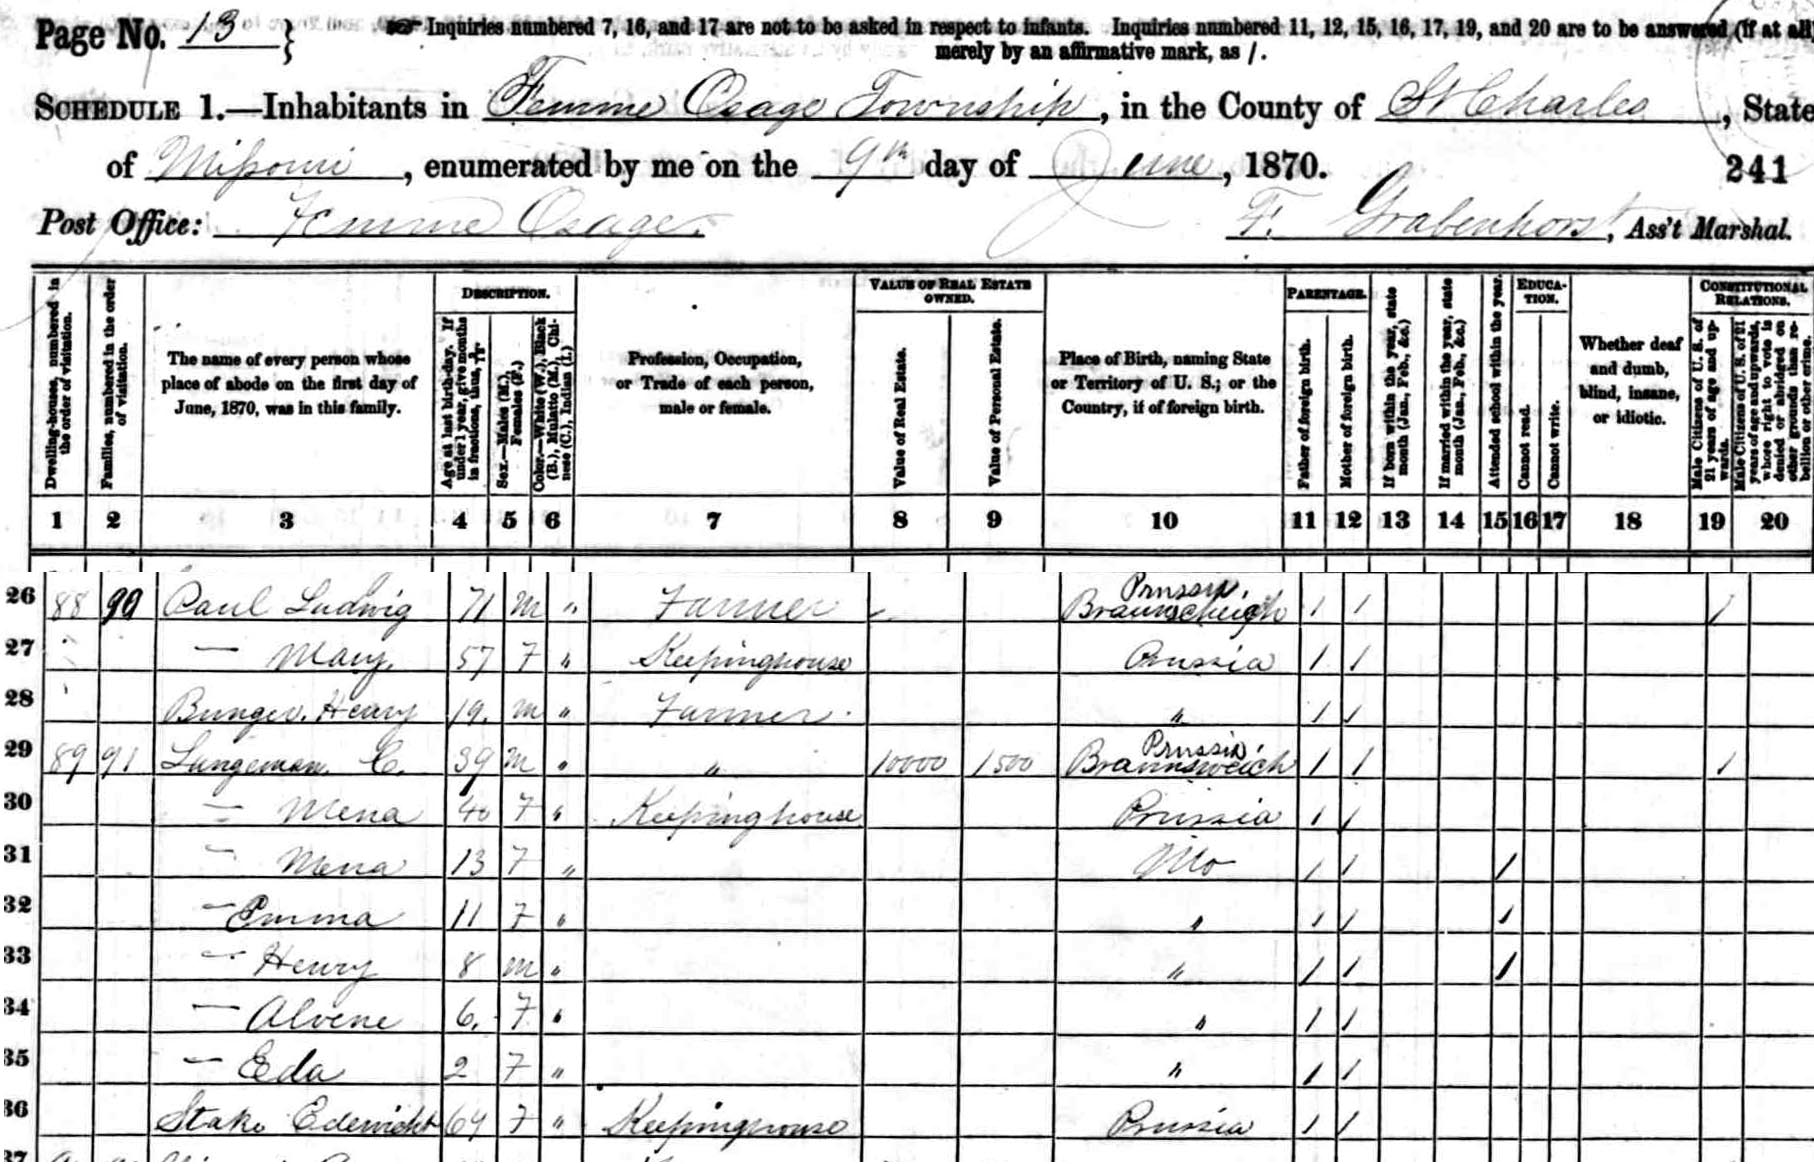 Page No. 13 }
Inquiries numbered 7, 16, and 17 are not to be asked in respect to infants. Inquiries numbered 11, 12, 15, 16, 17, 19, and 20 are to be answered (if at all)
merely by an affirmative mark, as /.
SCHEDULE 1.—Inhabitants in Femme Osage Township, in the County of St Charles, State
of Missouri, enumerated by me on the 9th day of June, 1870. 241
Post Office: Femme Osage. F. Grabenhorst, Ass't Marshal.
Dwelling-houses, numbered in the order of visitation.
Families, numbered in the order of visitation.
The name of every person whose place of abode on the first day of June, 1870, was in this family.
DESCRIPTION.
Age at last birth-day. If under 1 year, give months in fractions, thus,
Sex.—Males (M.), Females (F.)
Color.—White (W.), Black (B.), Mulatto (M.), Chinese (C.), Indian (I.)
Profession, Occupation, or Trade of each person, male or female.
VALUE OF REAL ESTATE OWNED.
Value of Real Estate.
Value of Personal Estate.
Place of Birth, naming State or Territory of U. S.; or the Country, if of foreign birth.
PARENTAGE.
Father of foreign birth.
Mother of foreign birth.
If born within the year, state month (Jan., Feb., &c.)
If married within the year, state month (Jan., Feb., &c.)
Attended school within the year.
EDUCATION.
Cannot read.
Cannot write.
Whether deaf and dumb, blind, insane, or idiotic.
CONSTITUTIONAL RELATIONS.
Male Citizens of U. S. of 21 years of age and upwards.
Male Citizens of U. S. of 21 years of age and upwards, whose right to vote is denied or abridged on other grounds than rebellion or other crime.
1 2 3 4 5 6 7 8 9 10 11 12 13 14 15 16 17 18 19 20
26 88 90 Paul Ludwig 71 M " Farmer Prussia, Braunscheigh / / /
27 — Mary 57 F " Keepinghouse Prussia / /
28 Bunger. Henry 19. M " Farmer " / /
29 89 91 Langeman. C. 39 M " " 10000 1500 Prussia, Braunsweich / / /
30 — Mena 40 F " Keepinghouse Prussia / /
31 — Mena 13 F " Mo / / /
32 — Emma 11 F " " / / /
33 — Henry 8 M " " / / /
34 — Alvene 6. F " " / /
35 — Eda 2 F " " / /
36 Stake 69 F " Keepinghouse Prussia / /
37